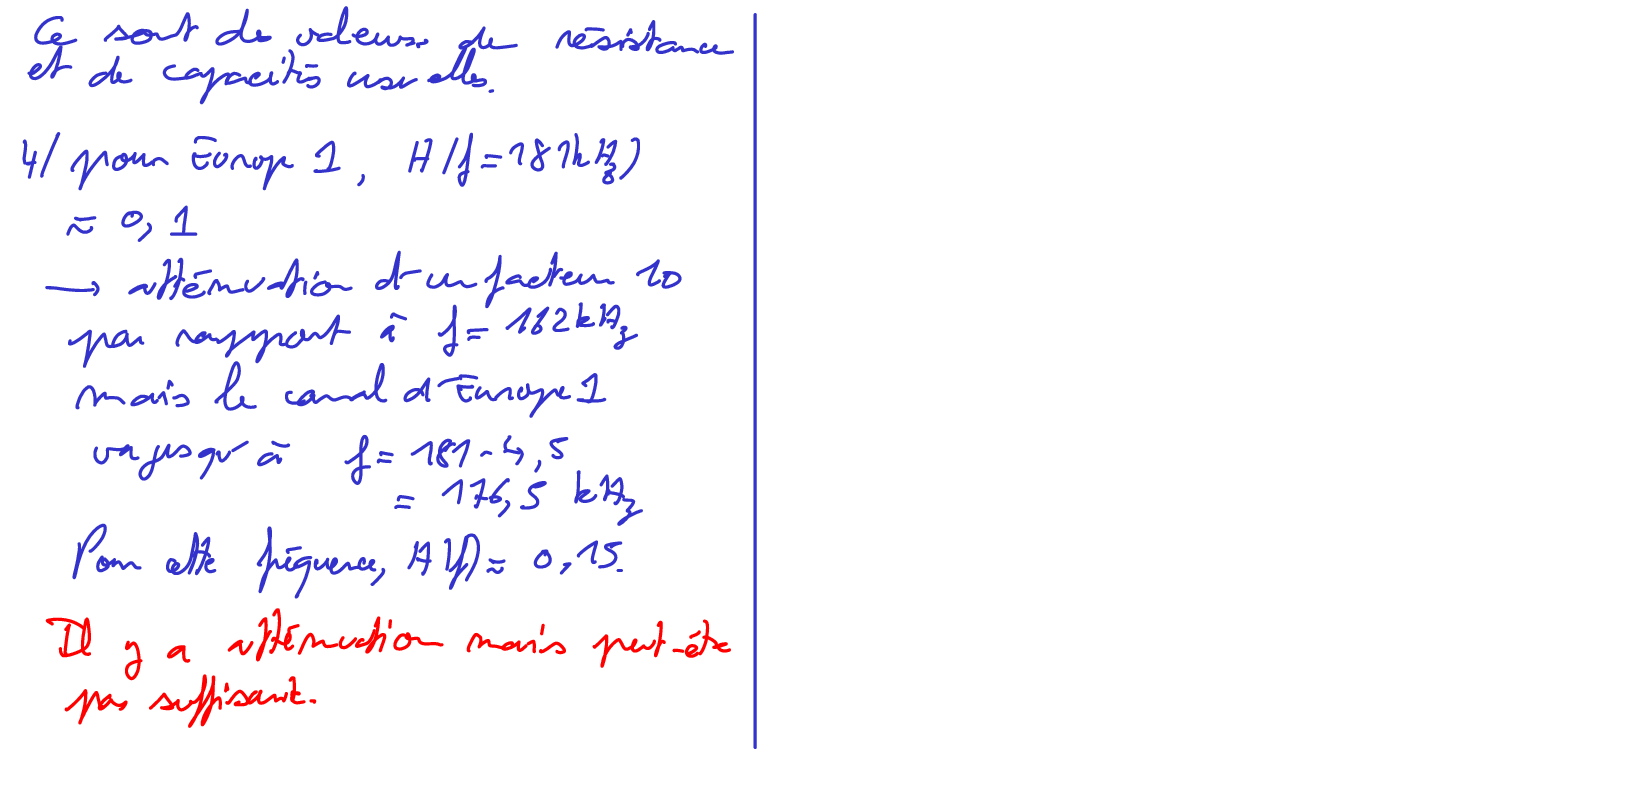 Ce sont des valeurs de résistance
et de capacités usuelles.
4/ pour Europe 1, H(f=181kHz)
≈ 0,1
→ atténuation d'un facteur 10
par rapport à f= 162kHz
mais le canal d'Europe 1
va jusqu'à f= 181-4,5
= 176,5 kHz
Pour cette fréquence, H(f)≈ 0,15.
Il y a atténuation mais peut-être
pas suffisant.